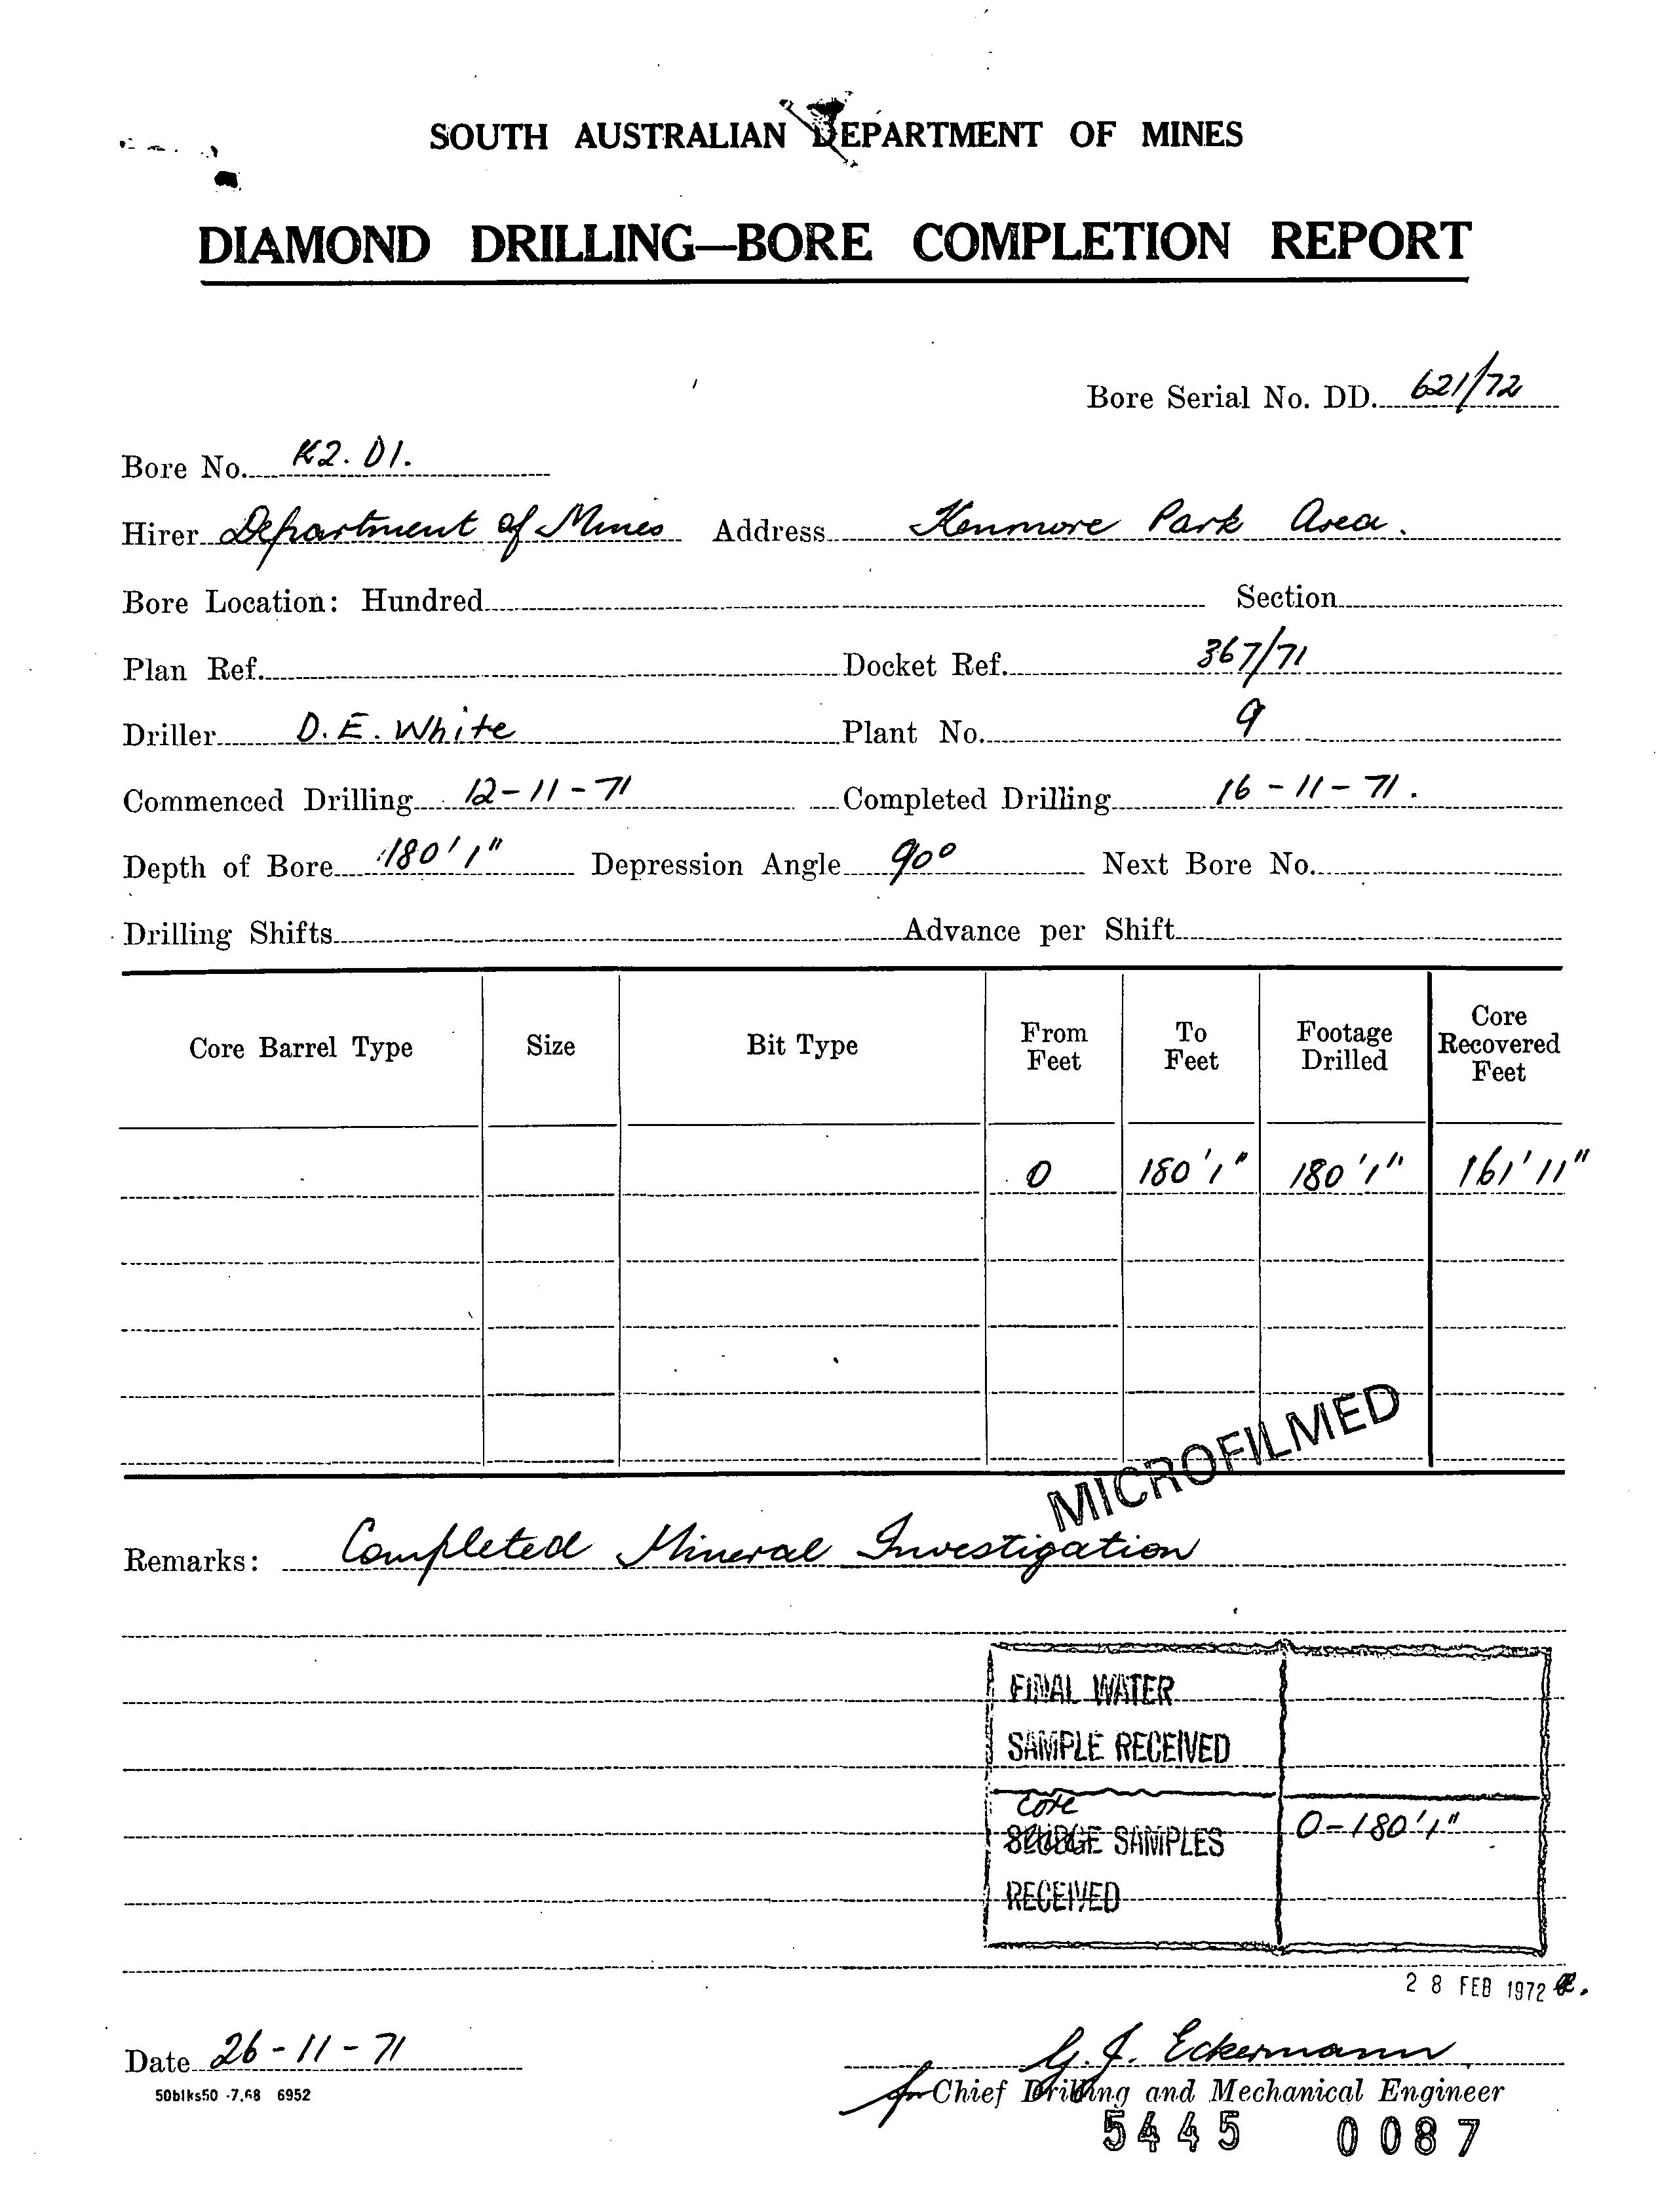 SOUTH AUSTRALIAN DEPARTMENT OF MINES
DIAMOND DRILLING—BORE COMPLETION REPORT
Bore Serial No. DD. 621/72
Bore No. K2. D1.
Hirer Department of Mines Address Kenmore Park Area.
Bore Location: Hundred Section
Plan Ref. Docket Ref. 367/71
Driller D. E. White Plant No. 9
Commenced Drilling 12-11-71 Completed Drilling 16-11-71.
Depth of Bore 180'1" Depression Angle 90° Next Bore No.
Drilling Shifts Advance per Shift
Core Barrel Type Size Bit Type From Feet To Feet Footage Drilled Core Recovered Feet
0 180'1" 180'1" 161'11"
MICROFILMED
Remarks: Completed Mineral Investigation
FINAL WATER
SAMPLE RECEIVED
Core
SLUDGE SAMPLES 0-180'1"
RECEIVED
28 FEB 1972
Date 26-11-71 G. J. Eckermann
50blks50 -7.68 6952 for Chief Drilling and Mechanical Engineer
5445 0087